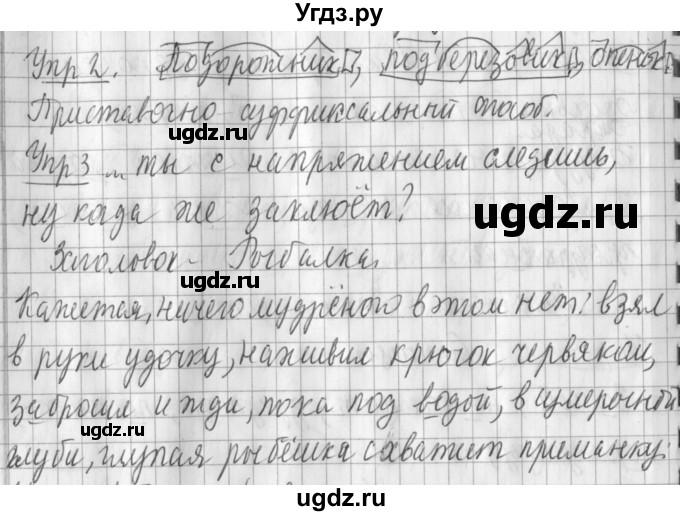 Угдз.ру
Упр 2. Подорожник, подберезовик, опенок.
Приставочно суффиксальный способ.
угдз.ru
Упр 3 ... ты с напряжением следишь,
ugdz.ru
ну когда же заклюёт?
Заголовок - Рыбалка.
ugdz.ru
Кажется, ничего мудрёного в этом нет: взял
в руки удочку, наживил крючок червяком,
забросил и жди, пока под водой, в сумерочной
ugdz.ru
глуби, глупая рыбёшка схватит приманку:
ugdz.ru